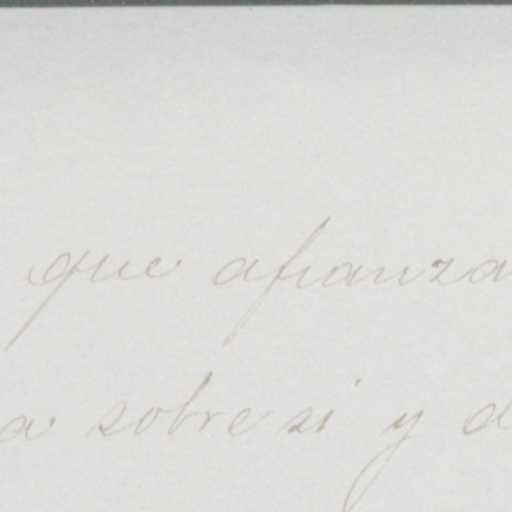 que afianza
a sobre si y d